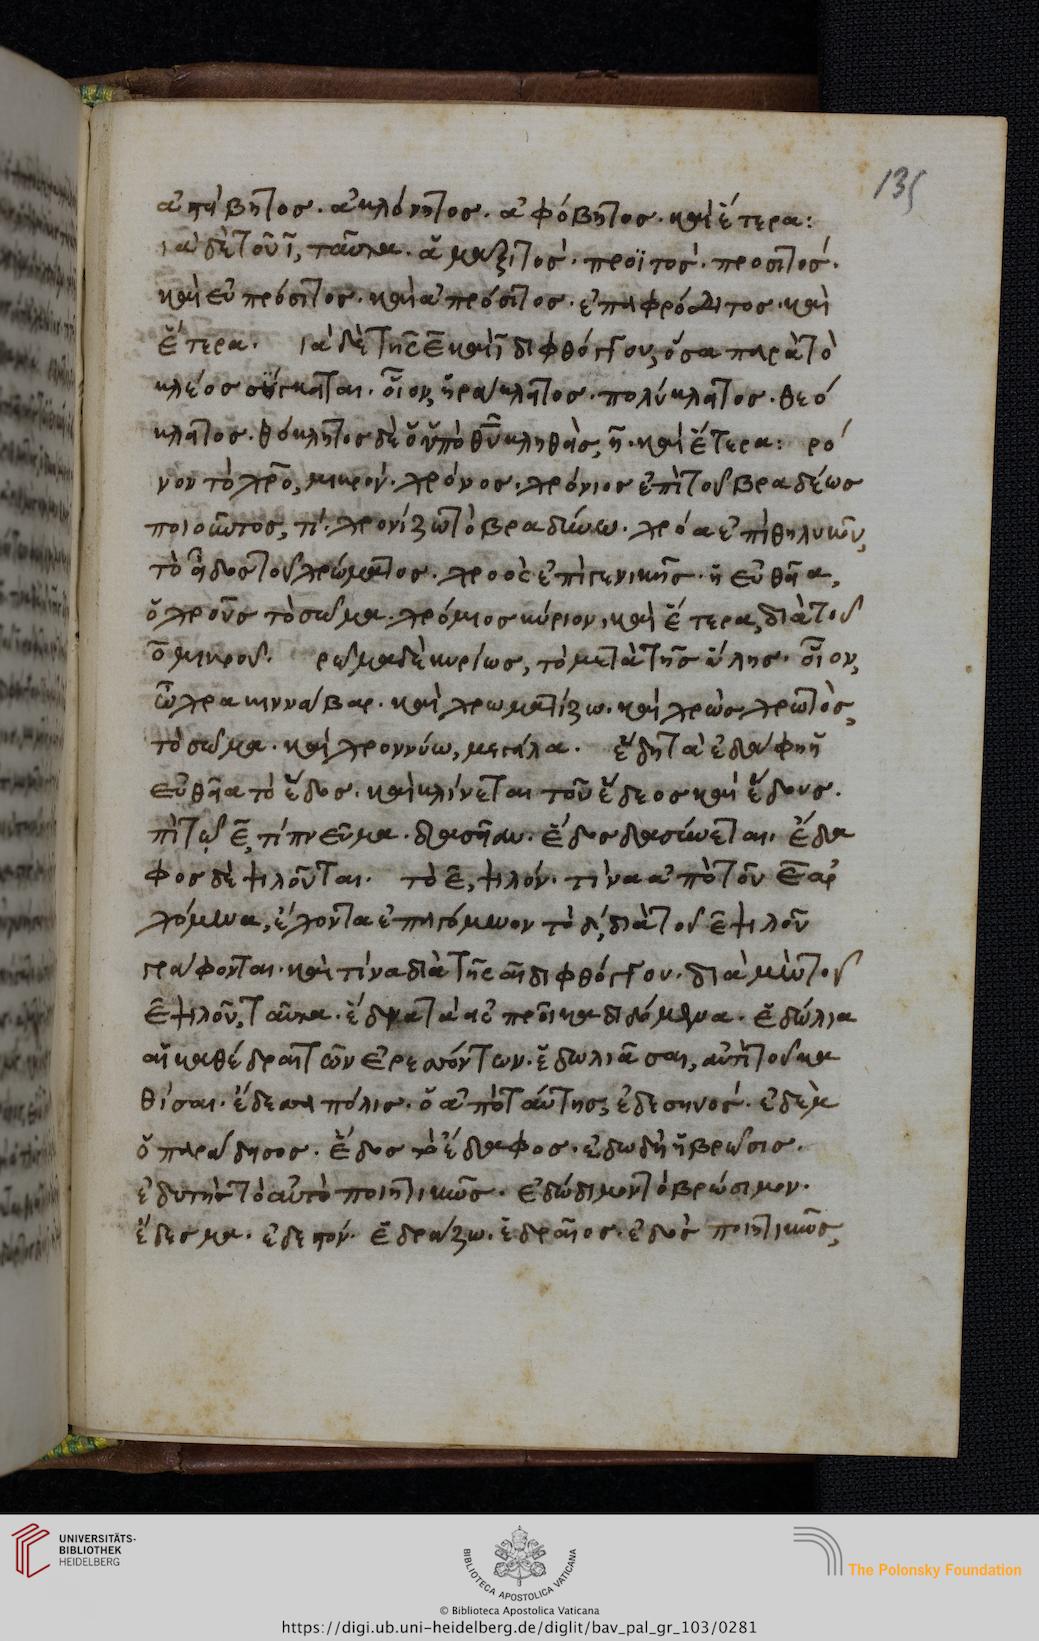 135
ἀπήβητος. ἀκλόνητος. ἀφόβητος. καὶ ἕτερα:
ιὰ δὲ τοῦ ῖ, ταῦτα. ἁμαξιτός. προϊτός. προσιτός.
καὶ εὐπρόσιτος. καὶ ἀπρόσιτος. ἐπαφρόδιτος. καὶ
ἕτερα. ιὰ δὲ τῆς ε καὶ ῖ διφθόγγου, ὅσα παρὰ τὸ
κλέος σύγκειται. οἷον, ἡράκλειτος. πολύκλειτος. θεό
κλειτος. θεόκλητος δὲ ὁ ὑπὸ θῦ κληθείς, η. καὶ ἕτερα: ρό
νον τὸ χρο, μικρόν. χρόνος. χρόνιος ἐπὶ τοῦ βραδέως
ποιοῦντος, τί. χρονίζω τὸ βραδύνω. χρόα ἐπὶ θηλυκῶν,
τὸ εἶδος τοῦ χρώματος. χροὸς ἐπὶ γενικῆς. ἡ εὐθεῖα,
ὁ χροῦς τὸ σῶμα. χρόμιος κύριον, καὶ ἕτερα, διὰ τοῦ
ο μικροῦ. ρῶμα δὲ κυρίως, τὸ μετὰ τῆς ὕλης. οἷον,
ὦχρα κιννάβαρ. καὶ χρωματίζω. καὶ χρὼς χρωτὸς,
τὸ σῶμα. καὶ χρωννύω, μεγάλα. ἕδη τὰ ἐδάφη ἡ
εὐθεῖα τὸ ἕδος. καὶ κλίνεται τοῦ ἕδεος καὶ ἕδους.
πὶ τῷ ε, τί πνεῦμα. δασεῖαν. ἕδος δασύνεται. ἔδα
φος δὲ ψιλοῦται. τὸ ε, ψιλόν. τίνα ἀπὸ τοῦ ε ἀρ
χόμενα, ἔχοντα ἐπαγόμενον τὸ δ, διὰ τοῦ ε ψιλοῦ
γράφονται. καὶ τίνα διὰ τῆς αι διφθόγγου. διὰ μὲν τοῦ
ε ψιλοῦ, ταῦτα. ἕδνα τὰ εἰς προῖκα διδόμενα. ἑδώλια
αἱ καθέδραι τῶν ἐρεσσόντων. ἑδωλιᾶσαι, αὐτὶ τοῦ κα
θίσαι. ἔδεσα πόλις. ὁ ἀπὸ ταύτης, ἐδεσηνός. ἐδὲμ
ὁ παράδησος. ἕδος τὸ ἔδαφος. ἐδωδὴ ἡ βρῶσις.
ἐδητὺς τὸ αὐτὸ ποιητικῶς. ἐδώδιμον τὸ βρώσιμον.
ἔδεσμα. ἐδεστόν. ἑδράζω. ἑδραῖος. ἐδὸς ποιητικῶς,
UNIVERSITÄTS-
BIBLIOTHEK
HEIDELBERG
BIBLIOTECA APOSTOLICA VATICANA
The Polonsky Foundation
© Biblioteca Apostolica Vaticana
https://digi.ub.uni-heidelberg.de/diglit/bav_pal_gr_103/0281